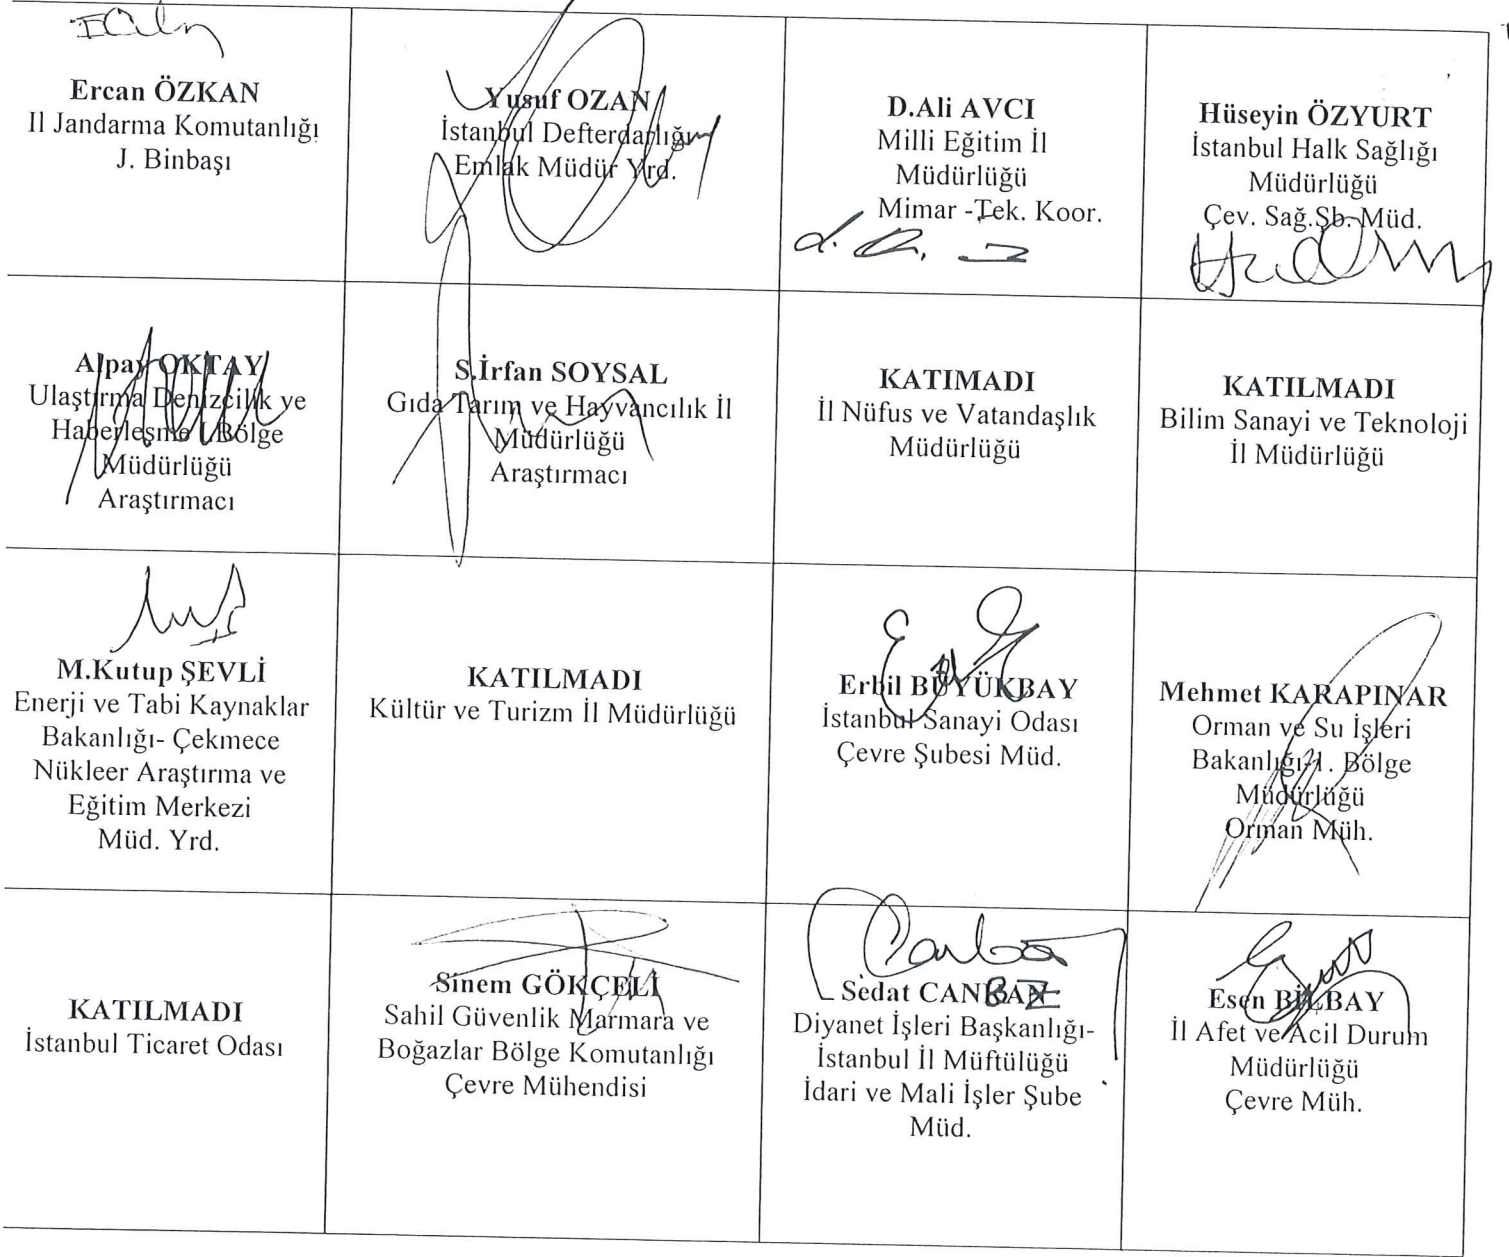 Ercan ÖZKAN
Il Jandarma Komutanlığı
J. Binbaşı
Yusuf OZAN
İstanbul Defterdarlığı
Emlak Müdür Yrd.
D.Ali AVCI
Milli Eğitim İl
Müdürlüğü
Mimar -Tek. Koor.
Hüseyin ÖZYURT
İstanbul Halk Sağlığı
Müdürlüğü
Çev. Sağ.Şb. Müd.
Alpay OKTAY
Ulaştırma Denizcilik ve
Haberleşme I.Bölge
Müdürlüğü
Araştırmacı
S.İrfan SOYSAL
Gıda Tarım ve Hayvancılık İl
Müdürlüğü
Araştırmacı
KATIMADI
İl Nüfus ve Vatandaşlık
Müdürlüğü
KATILMADI
Bilim Sanayi ve Teknoloji
İl Müdürlüğü
M.Kutup ŞEVLİ
Enerji ve Tabi Kaynaklar
Bakanlığı- Çekmece
Nükleer Araştırma ve
Eğitim Merkezi
Müd. Yrd.
KATILMADI
Kültür ve Turizm İl Müdürlüğü
Erbil BÜYÜKBAY
İstanbul Sanayi Odası
Çevre Şubesi Müd.
Mehmet KARAPINAR
Orman ve Su İşleri
Bakanlığı-1. Bölge
Müdürlüğü
Orman Müh.
KATILMADI
İstanbul Ticaret Odası
Sinem GÖKÇELİ
Sahil Güvenlik Marmara ve
Boğazlar Bölge Komutanlığı
Çevre Mühendisi
Sedat
Diyanet İşleri Başkanlığı-
İstanbul İl Müftülüğü
İdari ve Mali İşler Şube
Müd.
Esen BİLBAY
İl Afet ve Acil Durum
Müdürlüğü
Çevre Müh.